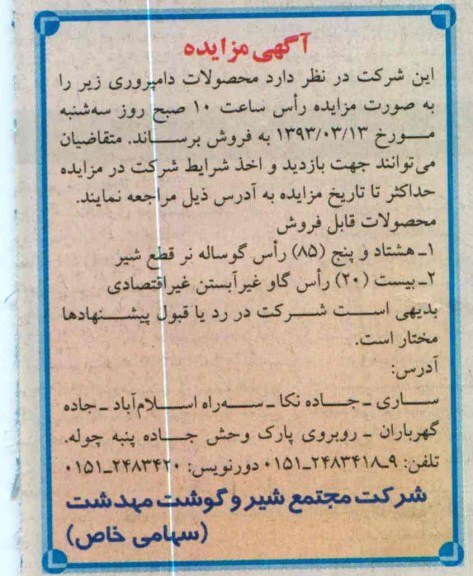 آگهی مزایده
این شرکت در نظر دارد محصولات دامپروری زیر را
به صورت مزایده رأس ساعت ۱۰ صبح روز سه‌شنبه
مورخ ۱۳۹۳/۰۳/۱۳ به فروش برساند. متقاضیان
می‌توانند جهت بازدید و اخذ شرایط شرکت در مزایده
حداکثر تا تاریخ مزایده به آدرس ذیل مراجعه نمایند.
محصولات قابل فروش
۱ـ هشتاد و پنج (۸۵) رأس گوساله نر قطع شیر
۲ـ بیست (۲۰) رأس گاو غیرآبستن غیراقتصادی
بدیهی است شرکت در رد یا قبول پیشنهادها
مختار است.
آدرس:
ساری ـ جاده نکا ـ سه‌راه اسلام‌آباد ـ جاده
گهرباران ـ روبروی پارک وحش جاده پنبه چوله.
تلفن: ۹ـ۲۴۸۳۴۱۸ـ۰۱۵۱ دورنویس: ۲۴۸۳۴۲۰ـ۰۱۵۱
شرکت مجتمع شیر و گوشت مهدشت
(سهامی خاص)